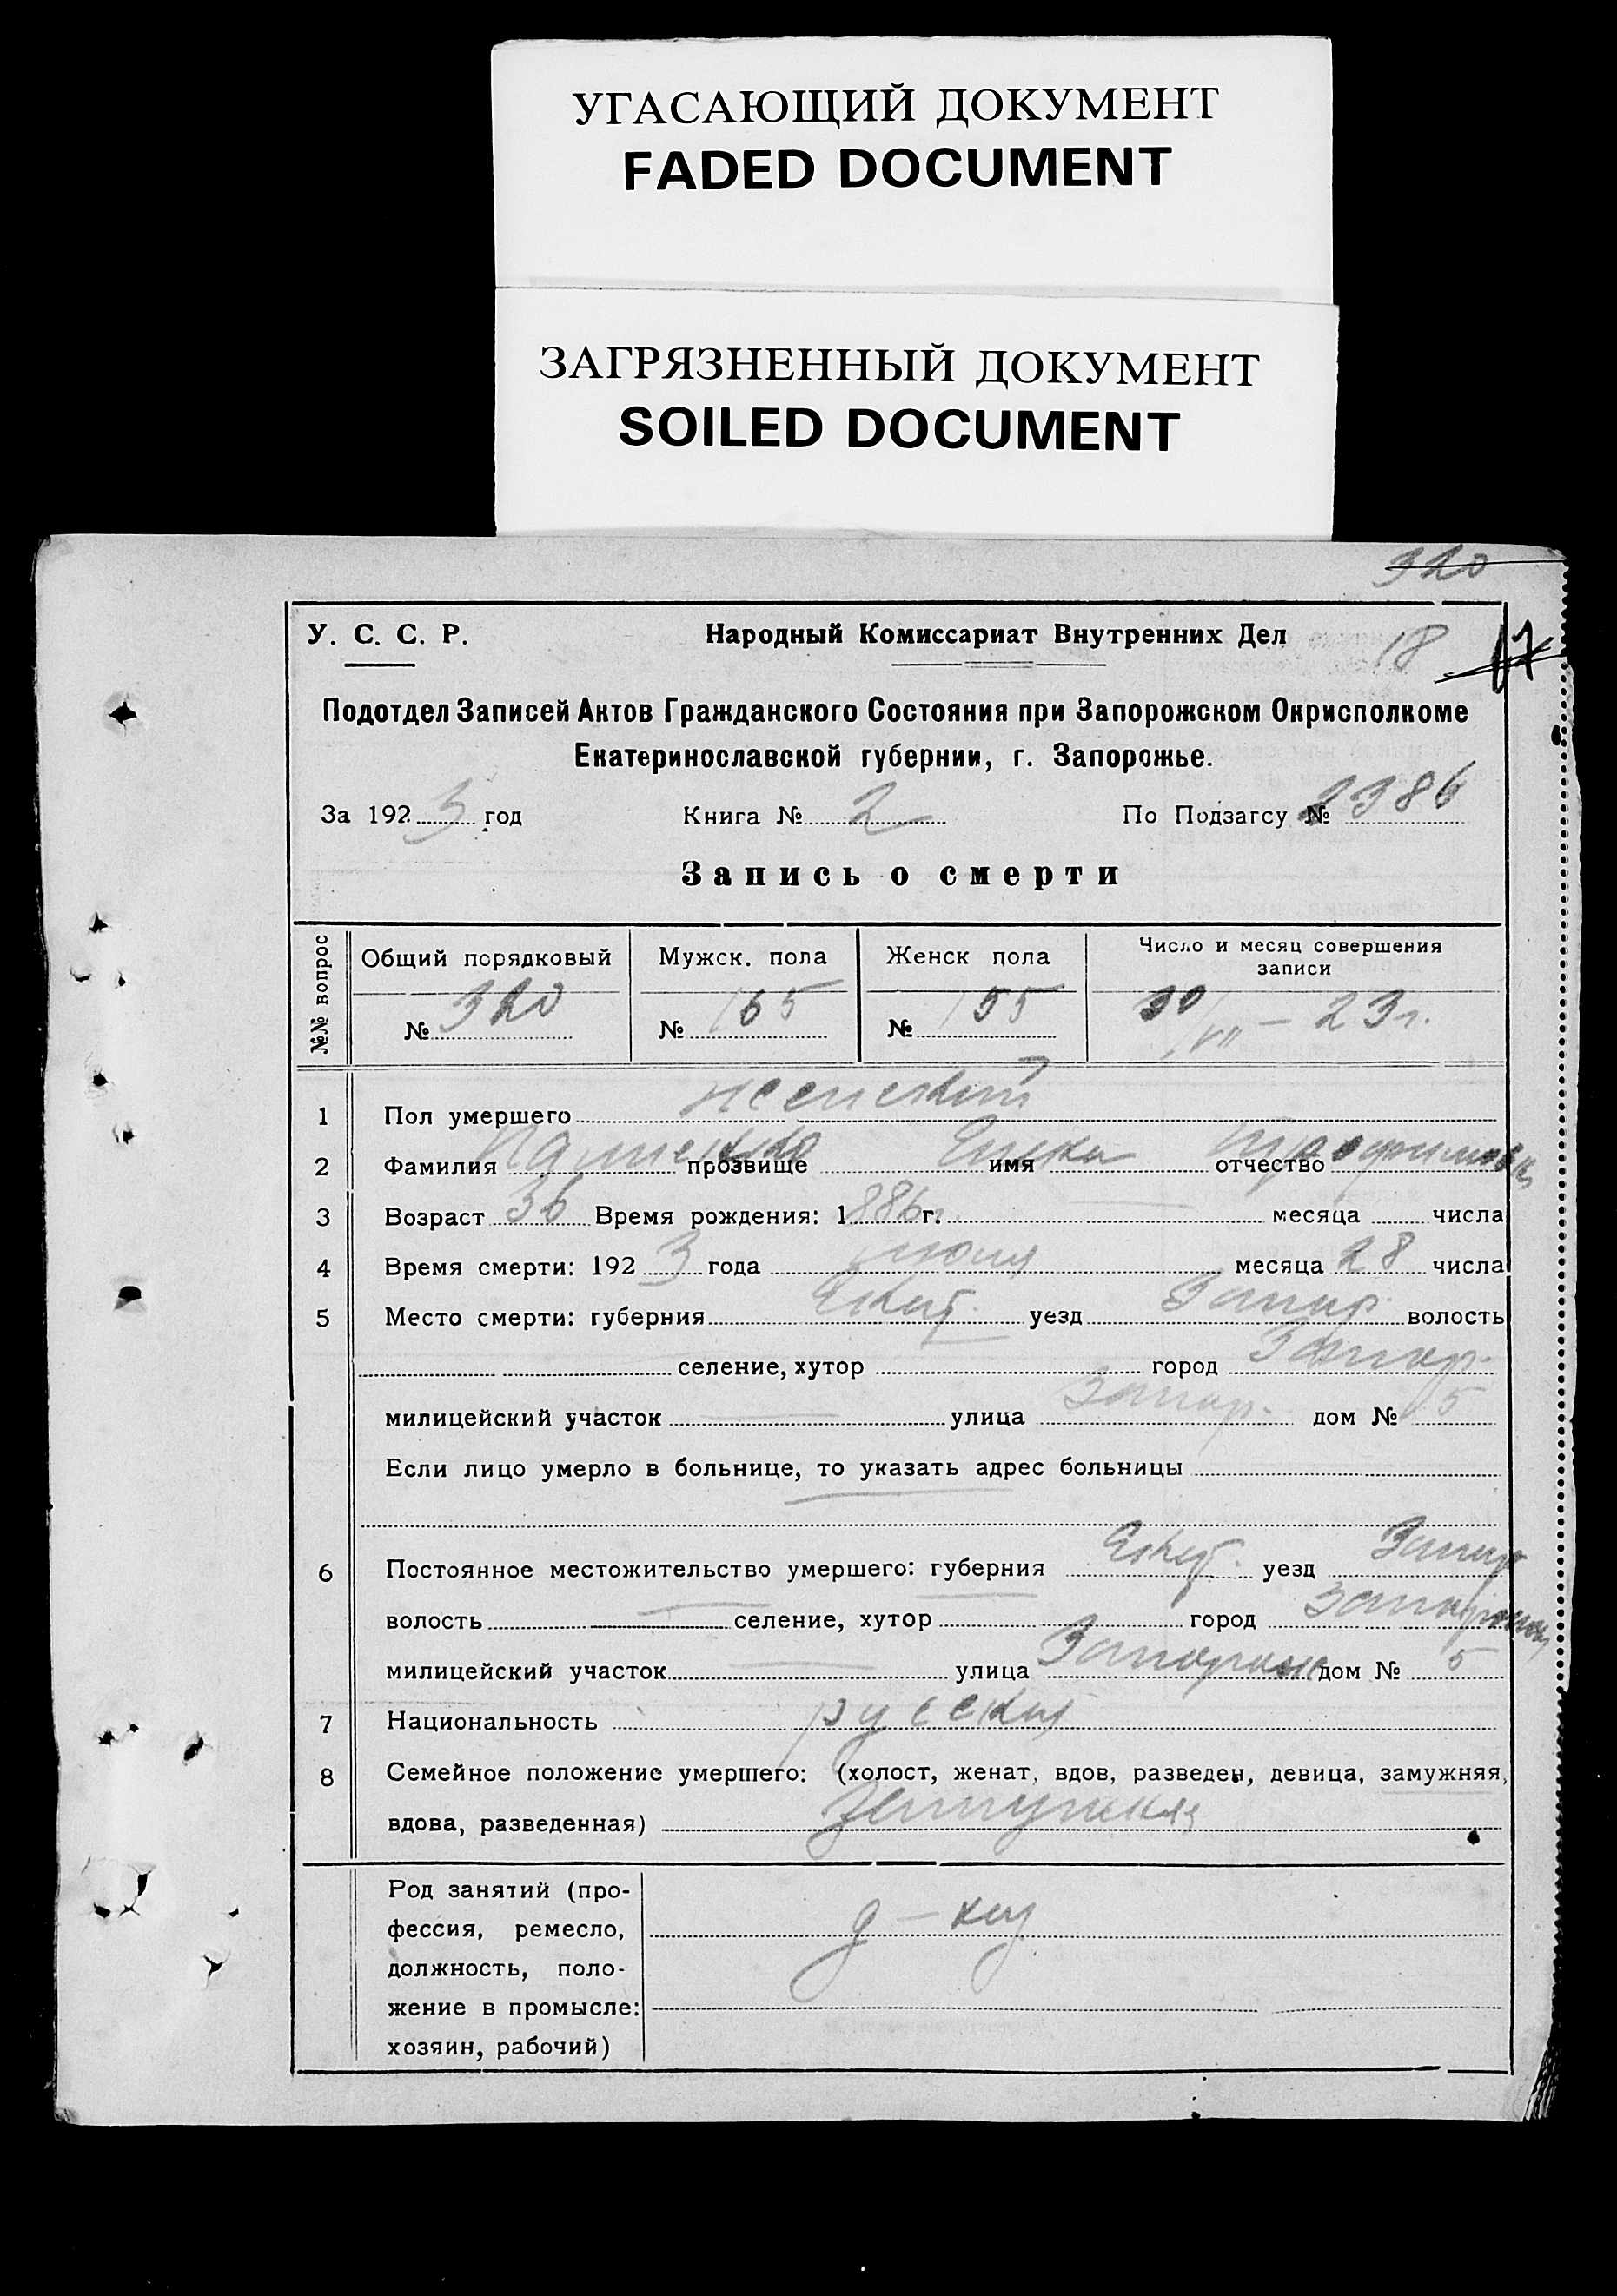 УГАСАЮЩИЙ ДОКУМЕНТ
FADED DOCUMENT
ЗАГРЯЗНЕННЫЙ ДОКУМЕНТ
SOILED DOCUMENT
320
У. С. С. Р. Народный Комиссариат Внутренних Дел 18 17
Подотдел Записей Актов Гражданского Состояния при Запорожском Окрисполкоме
Екатеринославской губернии, г. Запорожье.
За 1923 год Книга № 2 По Подзагсу № 2386
Запись о смерти
№№ вопрос Общий порядковый Мужск. пола Женск пола Число и месяц совершения
записи
№ 320 № 165 № 155 30/VII – 23 г.
1 Пол умершего женский
2 Фамилия прозвище имя отчество
3 Возраст 36 Время рождения: 1886 г. месяца числа
4 Время смерти: 1923 года июля месяца 28 числа
5 Место смерти: губерния Екат. уезд Запор. волость
селение, хутор город Запор.
милицейский участок улица Запор. дом № 5
Если лицо умерло в больнице, то указать адрес больницы
6 Постоянное местожительство умершего: губерния Екат. уезд Запор
волость селение, хутор город
милицейский участок улица дом № 5
7 Национальность русская
8 Семейное положение умершего: (холост, женат, вдов, разведен, девица, замужняя,
вдова, разведенная) замужняя
Род занятий (про-
фессия, ремесло, д – хоз
должность, поло-
жение в промысле:
хозяин, рабочий)